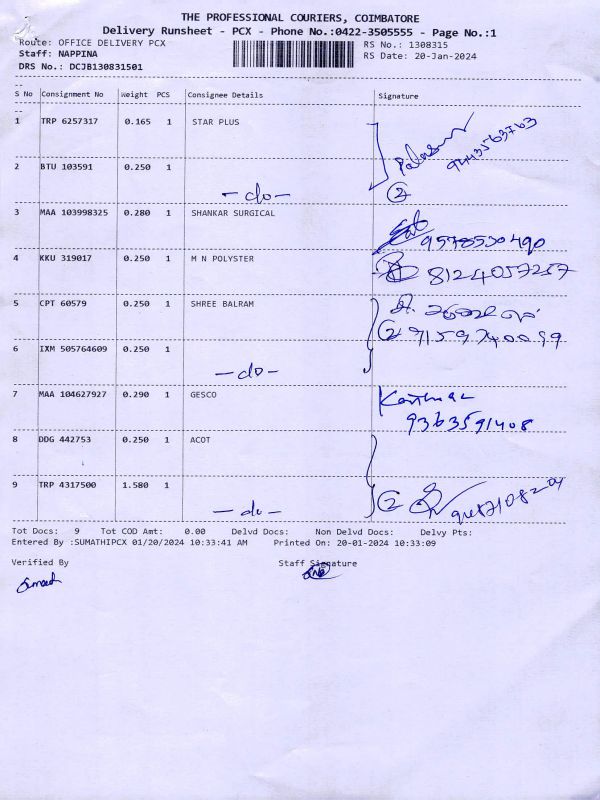 THE PROFESSIONAL COURIERS, COIMBATORE
Delivery Runsheet - PCX - Phone No.:0422-3505555 - Page No.:1
Route: OFFICE DELIVERY PCX RS No.: 1308315
Staff: NAPPINA RS Date: 20-Jan-2024
DRS No.: DCJB130831501
S No Consignment No Weight PCS Consignee Details Signature
1 TRP 6257317 0.165 1 STAR PLUS
9443563763
2 BTU 103591 0.250 1
-do- 2
3 MAA 103998325 0.280 1 SHANKAR SURGICAL
9578530490
4 KKU 319017 0.250 1 M N POLYSTER
8124057257
5 CPT 60579 0.250 1 SHREE BALRAM
2
6 IXM 505764609 0.250 1
-do-
7 MAA 104627927 0.290 1 GESCO
9363591408
8 DDG 442753 0.250 1 ACOT
9 TRP 4317500 1.580 1
-do- 2
Tot Docs: 9 Tot COD Amt: 0.00 Delvd Docs: Non Delvd Docs: Delvy Pts:
Entered By :SUMATHIPCX 01/20/2024 10:33:41 AM Printed On: 20-01-2024 10:33:09
Verified By Staff Signature